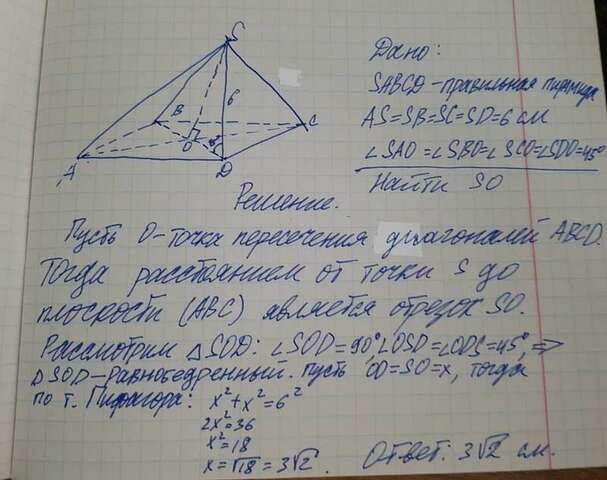 S
B
6
C
O
45°
A
D
Дано:
SABCD - правильная пирамида
AS=SB=SC=SD=6 см
∠SAO=∠SBO=∠SCO=∠SDO=45°
Найти SO
Решение.
Пусть O-точка пересечения диагоналей ABCD.
Тогда расстоянием от точки S до
плоскости (ABC) является отрезок SO.
Рассмотрим △SOD: ∠SOD=90°, ∠OSD=∠ODS=45°, ⇒
△SOD-равнобедренный. Пусть OD=SO=x, тогда
по т. Пифагора: x²+x²=6²
2x²=36
x²=18
x=√18=3√2.
Ответ: 3√2 см.